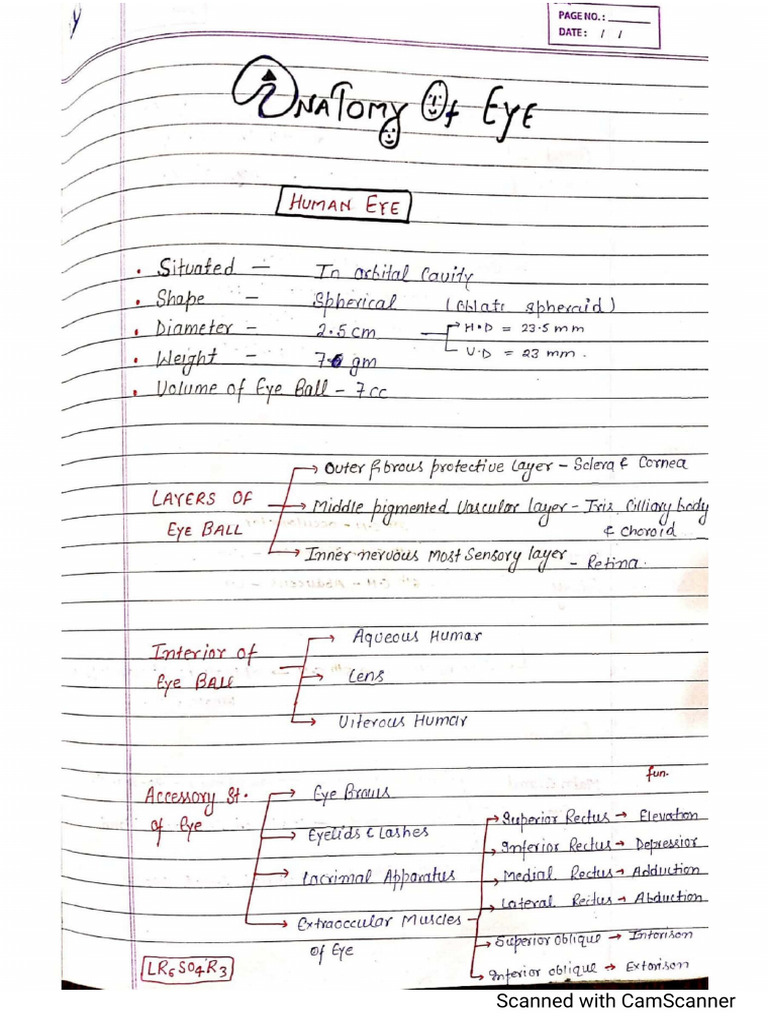 PAGE NO.:
DATE: / /
Anatomy Of Eye
HUMAN EYE
• Situated – In orbital Cavity
• Shape – Spherical (Oblate spheraid)
• Diameter – 2.5cm → H.D = 23.5 mm
V.D = 23 mm.
• Weight – gm
• Volume of Eye Ball – 7cc
LAYERS OF EYE BALL
→ Outer fibrous protective Layer – Sclera & Cornea
→ Middle pigmented Vascular layer – Iris, Cilliary body
& choroid
→ Inner nervous most Sensory layer – Retina.
Interior of Eye BALL
→ Aqueous Humar
→ Lens
→ Viterous Humar
fun.
Accessory St. of Eye
→ Eye Brows
→ Eyelids & Lashes
→ Lacrimal Apparatus
→ Extraoccular Muscles of Eye
→ Superior Rectus → Elevation
→ Inferior Rectus → Depression
→ Medial Rectus → Adduction
→ Lateral Rectus → Abduction
→ Superior oblique → Intorison
→ Inferior oblique → Extorison
LR6SO4R3
Scanned with CamScanner